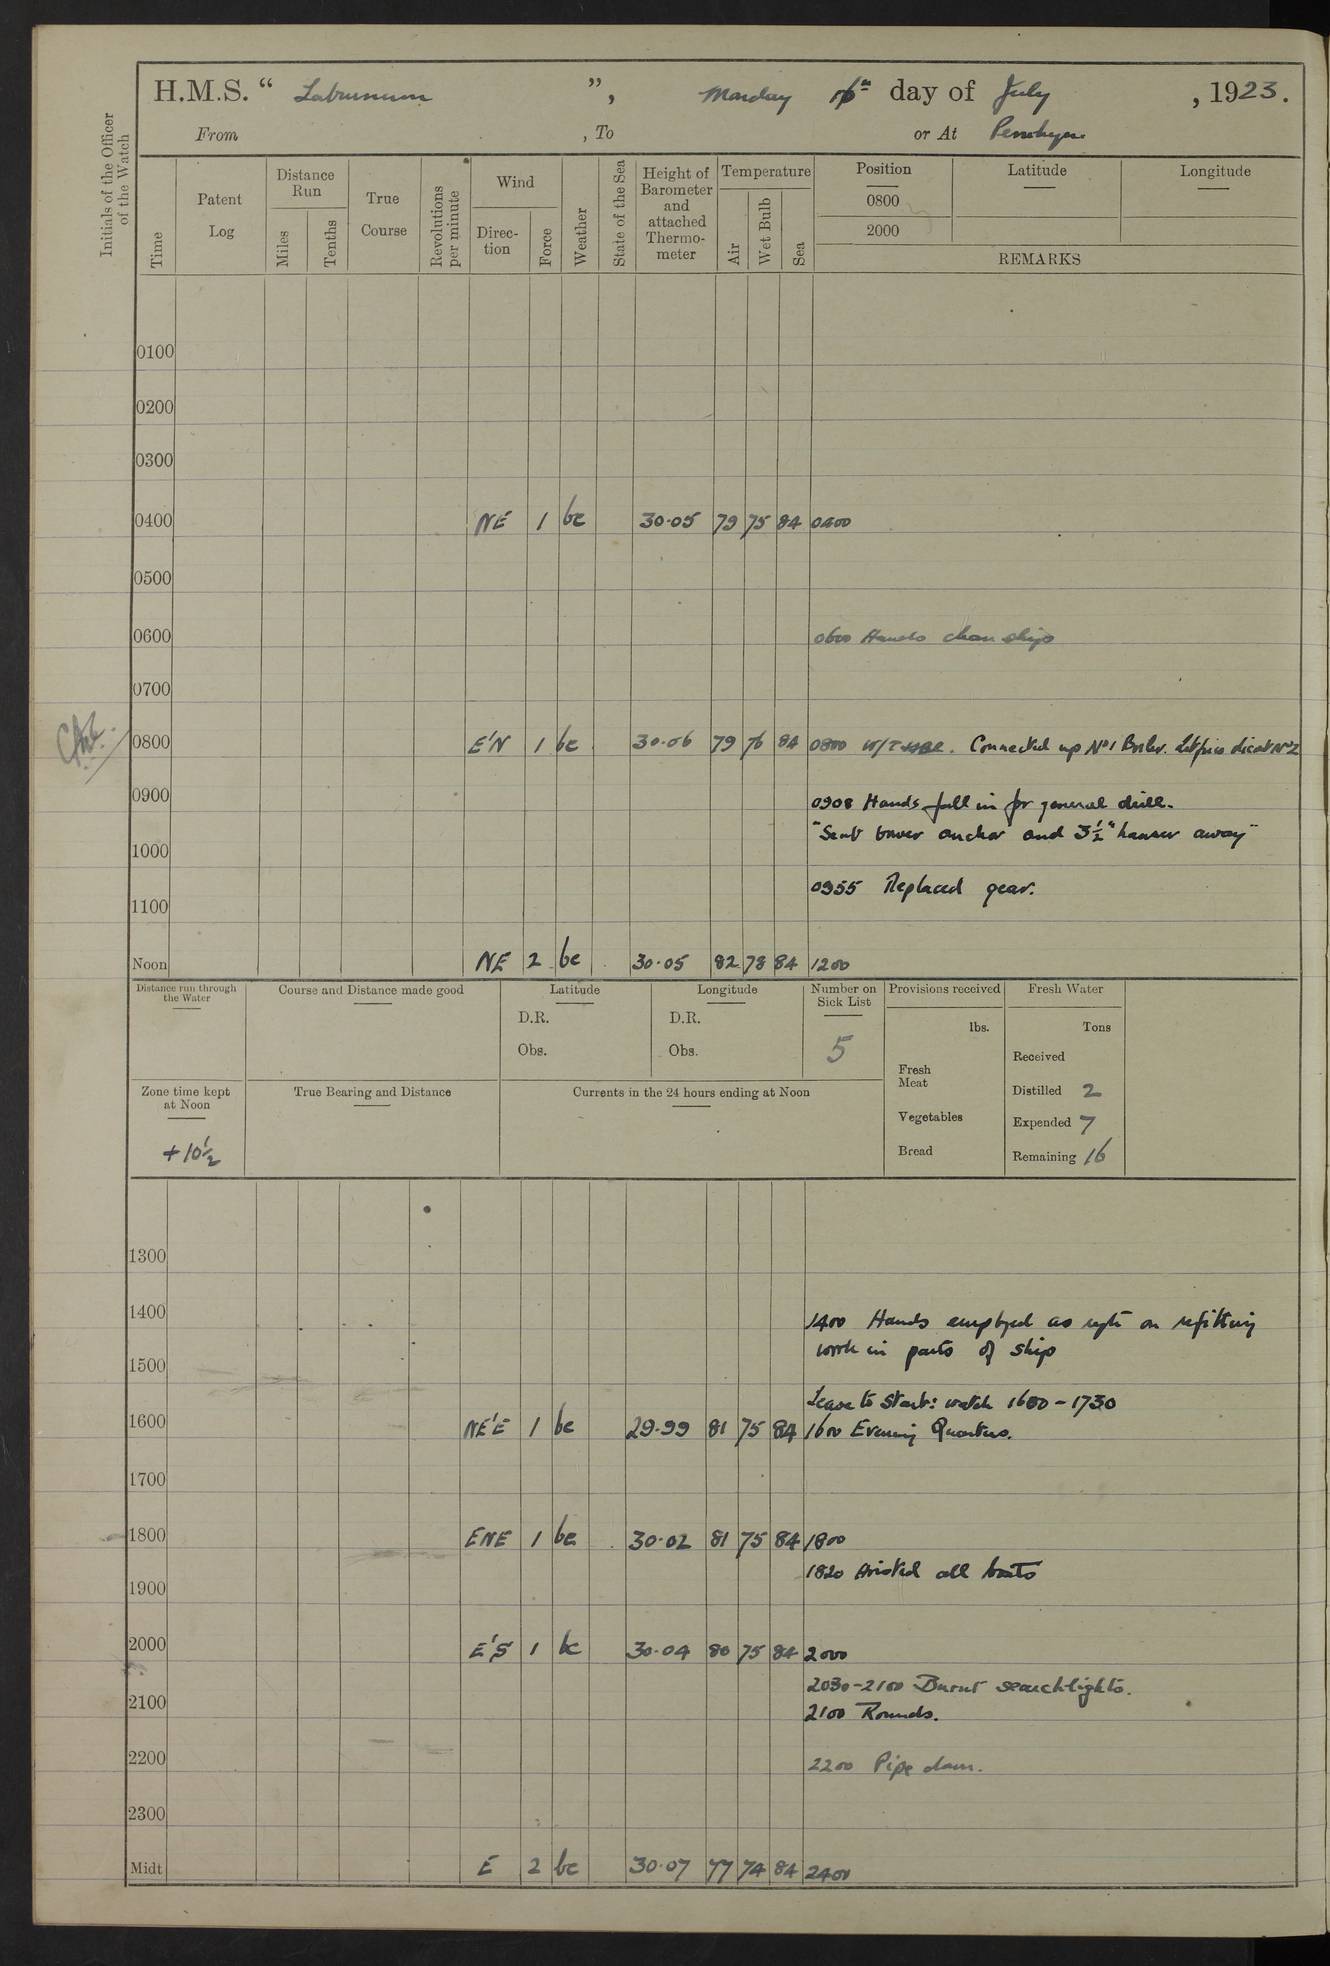 H.M.S. “ Laburnum ”, Monday 16th day of July , 1923.
From , To or At Penrhyn
Initials of the Officer of the Watch
Time
Patent Log
Distance Run
Miles
Tenths
True Course
Revolutions per minute
Wind
Direc-tion
Force
Weather
State of the Sea
Height of Barometer and attached Thermo-meter
Temperature
Air
Wet Bulb
Sea
Position
0800
2000
Latitude
Longitude
REMARKS
0100
0200
0300
0400 NE 1 bc 30.05 79 75 84 0400
0500
0600 0600 Hands clean ship
0700
0800 E'N 1 bc 30.06 79 76 84 0800 Connected up No 1 Boiler.
0900 0908 Hands fall in for general drill.
"Send bower anchor and 3½" hawser away"
1000
0955 Replaced gear.
1100
Noon NE 2 bc 30.05 82 78 84 1200
Distance run through the Water
Course and Distance made good
Latitude
D.R.
Obs.
Longitude
D.R.
Obs.
Number on Sick List
5
Provisions received
lbs.
Fresh Meat
Vegetables
Bread
Fresh Water
Tons
Received
Distilled 2
Expended 7
Remaining 16
Zone time kept at Noon
+10½
True Bearing and Distance
Currents in the 24 hours ending at Noon
1300
1400 1400 Hands employed as reqte on refitting
work in parts of ship
1500
Leave to Starb: watch 1600-1730
1600 NE'E 1 bc 29.99 81 75 84 1600 Evening Quarters.
1700
1800 ENE 1 bc 30.02 81 75 84 1800
1820 Hoisted all boats
1900
2000 E'S 1 bc 30.04 80 75 84 2000
2030-2100 Burnt searchlights.
2100 2100 Rounds.
2200 2200 Pipe down.
2300
Midt E 2 bc 30.07 77 74 84 2400